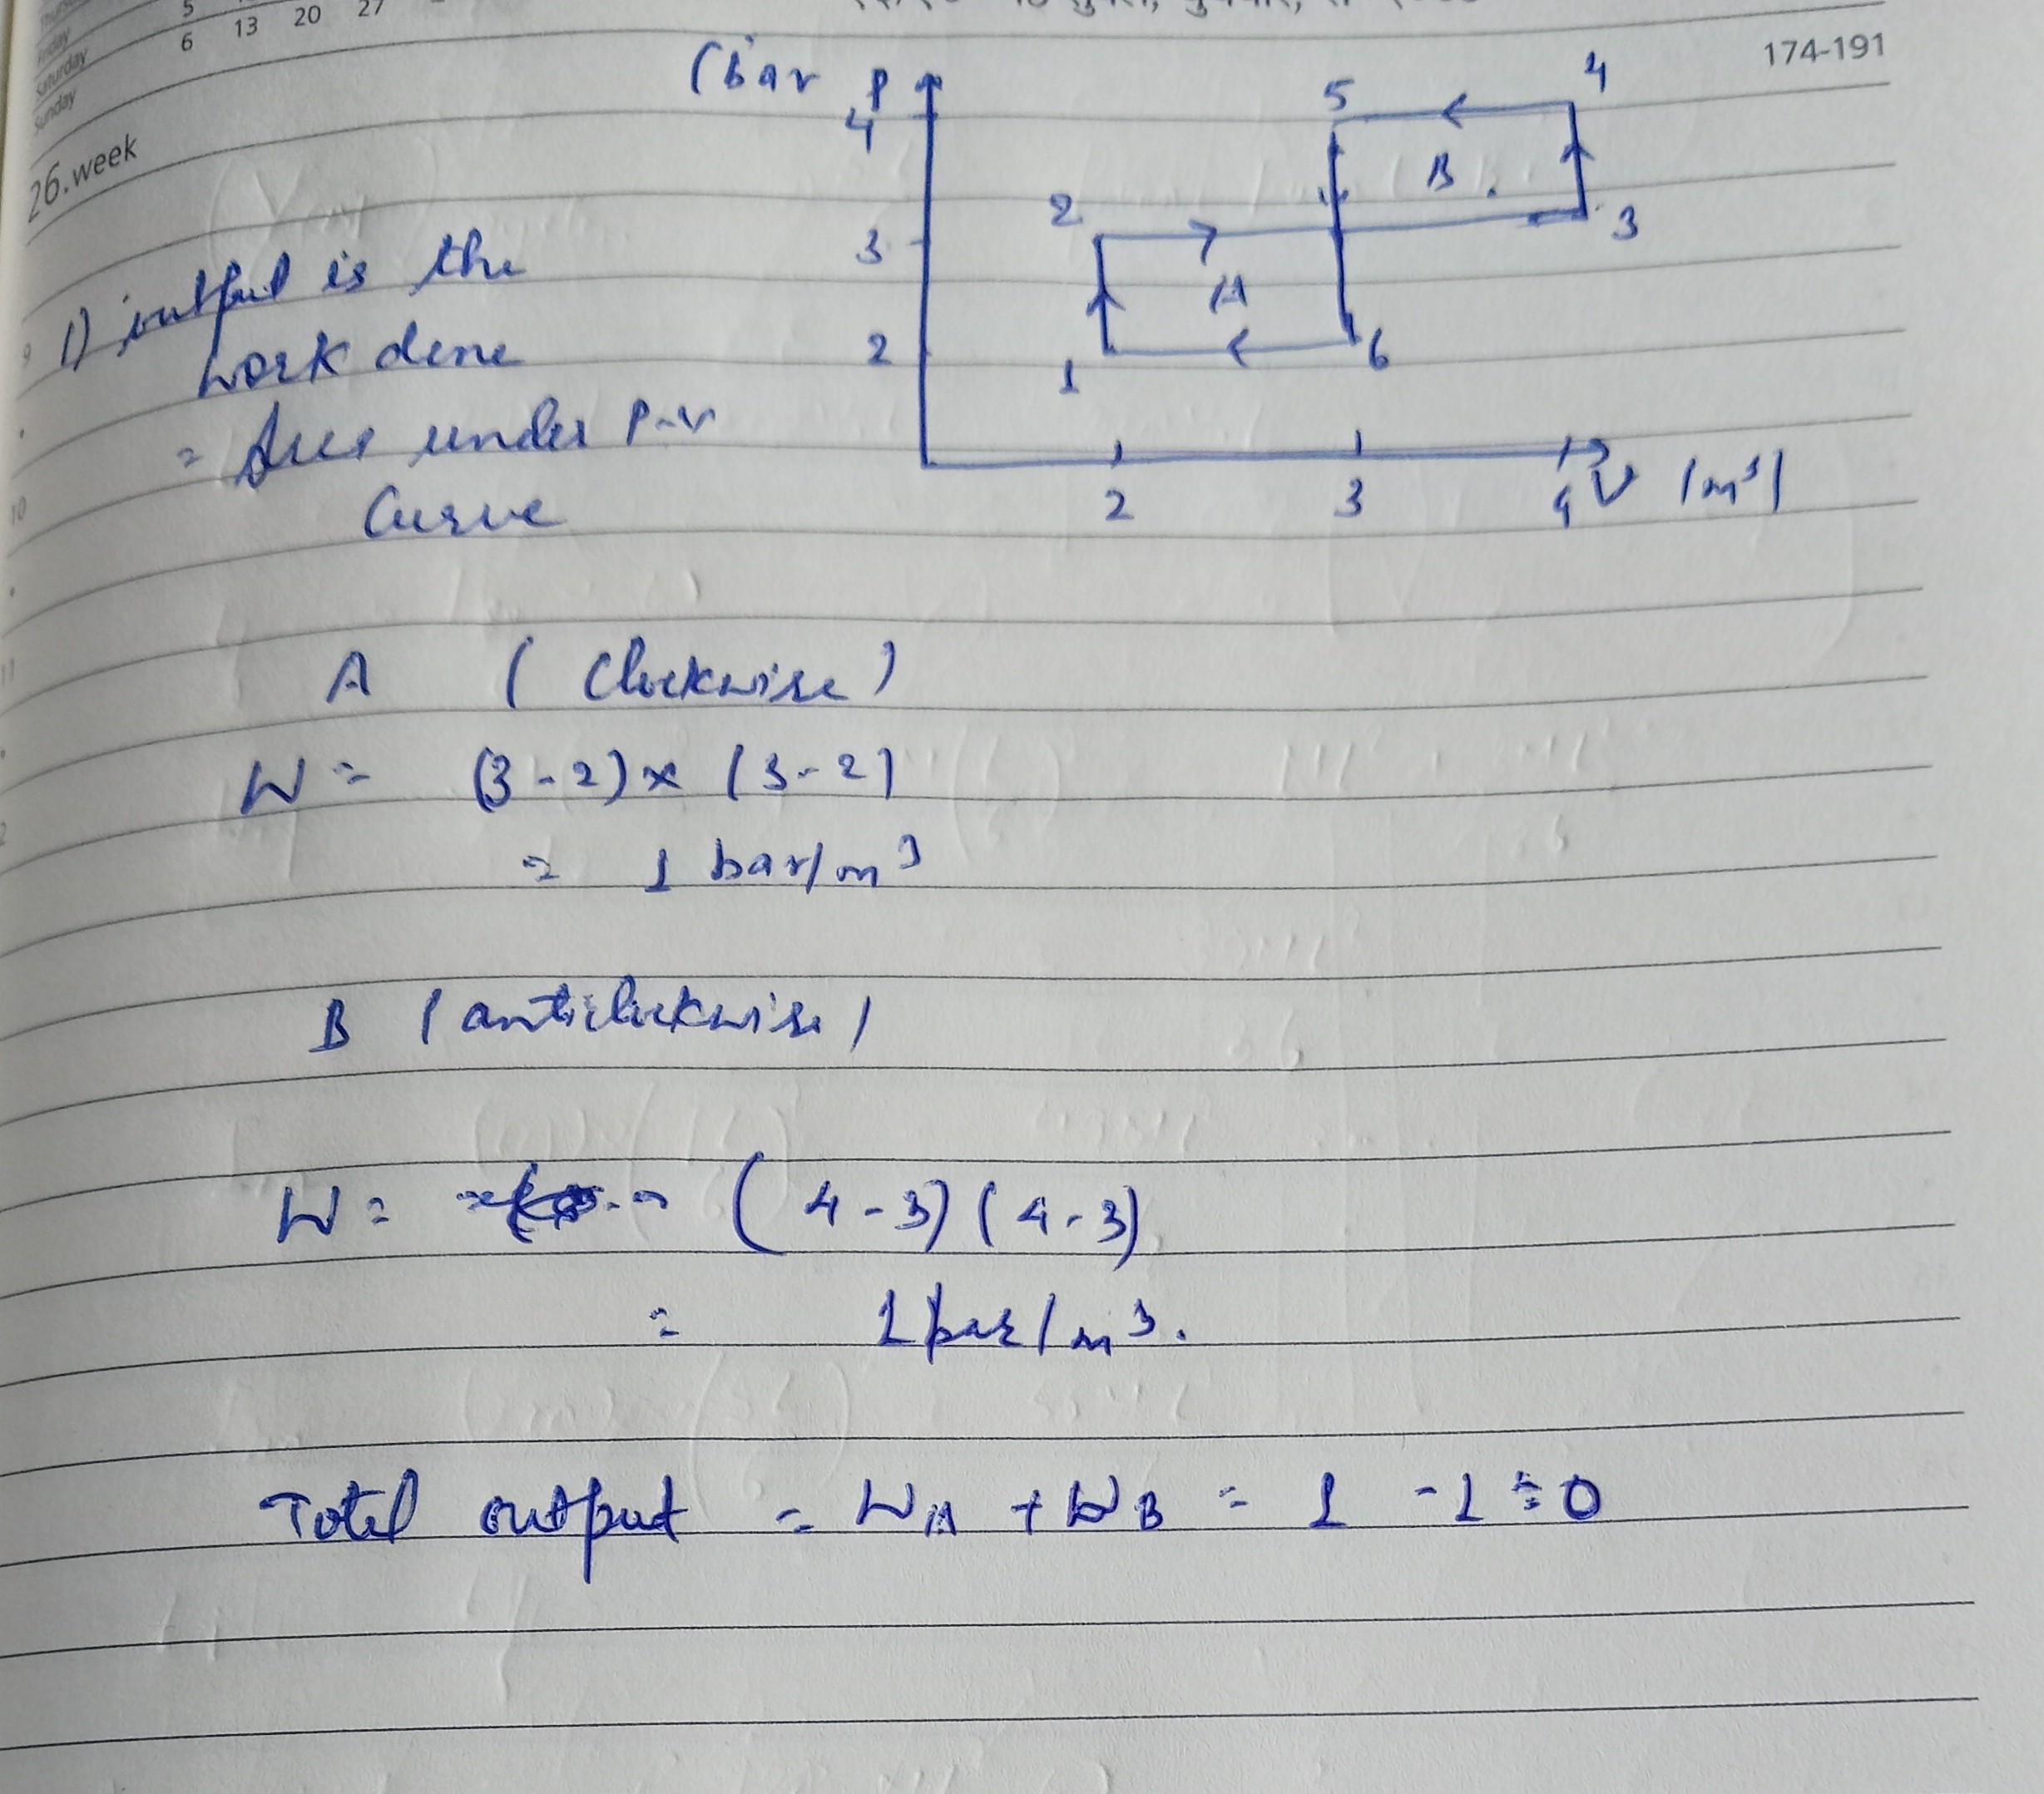 5
6 13 20 27
Friday
Saturday
Sunday
174-191
26.week
(bar P
4
3
2
5 4
B
2 3
A
1 6
2 3 4 V (m³)
1) output is the
work done
= Area under P-v
Curve
9
10
11
A ( Clockwise )
W = (3-2) × (3-2)
= 1 bar/m³
B ( anticlockwise )
W = - (4-3) (4-3)
= 1 bar/m³.
Total output = WA + WB = 1 - 1 = 0